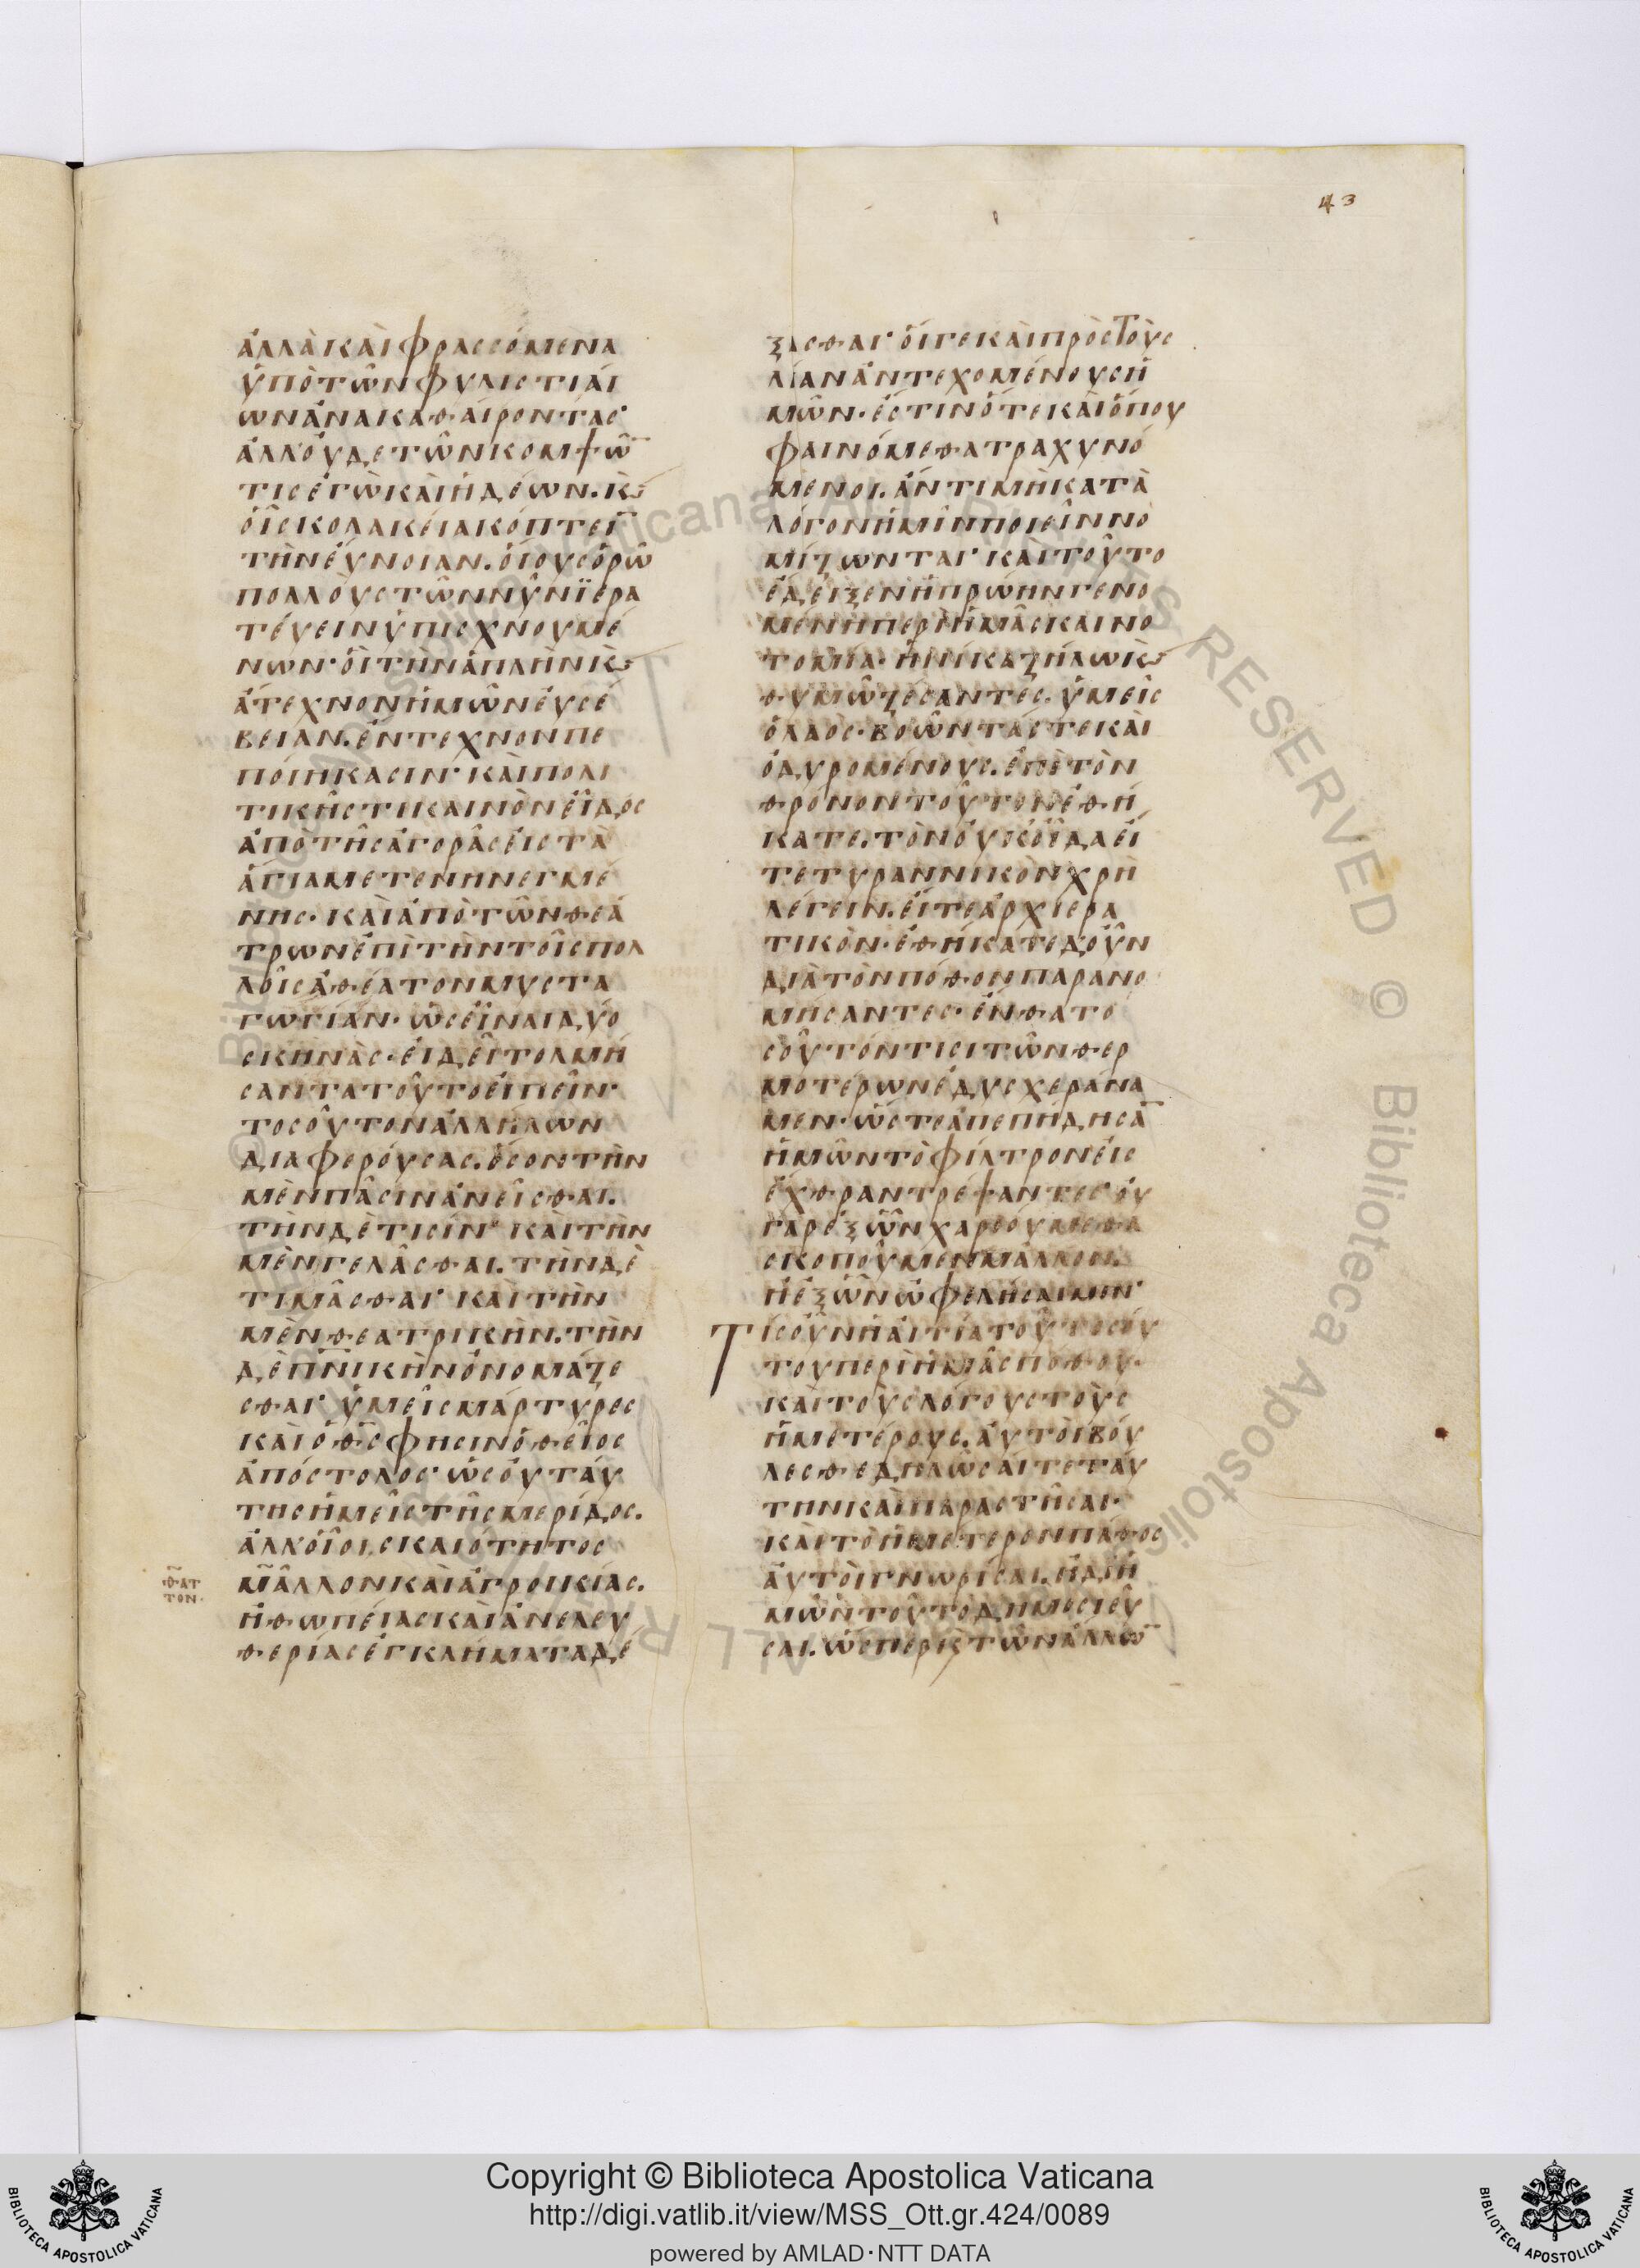 43
ἀλλὰ καὶ φρασσόμενα
ὑπὸ τῶν φυλιστιαί
ων ἀνακαθαίροντας·
ἀλλ' οὐδὲ τῶν κομψῶ̅
τις ἐγὼ καὶ ἡδέων. κ̀
οἷς κολακεία κόπτει̅
τὴν εὔνοιαν. οἵους ὁρῶ
πολλοὺς τῶν νῦν ϊερα
τεύειν ὑπισχνουμέ
νων· οἳ τὴν ἁπλῆν κ̀
ἄτεχνον ἡμῶν εὐσέ
βειαν. ἔντεχνον πε
ποιήκασιν· καὶ πολι
τικῆς τι καινὸν εἶδος
ἀπὸ τῆς ἀγορᾶς εἰς τὰ
ἅγια μετενηνεγμέ
νης. καὶ ἀπὸ τῶν θεά
τρων ἐπὶ τὴν τοῖς πολ
λοῖς ἀθέατον μυστα
γωγίαν. ὡς εἶναι δύο
σκηνὰς. εἰ δεῖ τολμή
σαντα τοῦτο εἰπεῖν·
τοσοῦτον ἀλλήλων
διαφερούσας. ὅσον τὴν
μὲν πᾶσιν ἀνεῖσθαι.
τὴν δὲ τισίν· καὶ τὴν
μὲν γελᾶσθαι. τὴν δὲ
τιμᾶσθαι· καὶ τὴν
μὲν θεατρικὴν. τὴν
δὲ π̅ν̅ικὴν ὀνομάζε
σθαι· ὑμεῖς μάρτυρες
καὶ ὁ θ̅ς̅ φησὶν ὁ θεῖος
ἀπόστολος· ὡς οὐ ταύ
της ἡμεῖς τῆς μερίδος.
ἀλλ' οἷοι σκαιότητος
θᾶτ
τον·
μᾶλλον καὶ ἀγροικίας.
ἢ θωπείας καὶ ἀνελευ
θερίας ἐγκλήματα δέ
ξασθαι· οἵ γε καὶ πρὸς τοὺς
λίαν ἀντεχομένους ἡ
μῶν. ἔστιν ὅτε καὶ ὅπου
φαινόμεθα τραχυνό
μενοι. ἄν τι μὴ κατὰ
λόγον ἡμῖν ποιεῖν νο
μίζωνται· καὶ τοῦτο
ἔδειξεν ἡ πρώην γενο
μένη περὶ ἡμᾶς καινο
τομία. ἡνίκα ζήλω κ̀
θυμῶ ζέσαντες. ὑμεῖς
ὁ λαὸς. βοῶντάς τε καὶ
ὀδυρομένους. ἐπὶ τὸν
θρόνον τοῦτον ἐθή
κατε. τὸν οὐκ οἶδα εἴ
τε τυραννικὸν χρὴ
λέγειν. εἴτε ἀρχιερα
τικὸν. ἐθήκατε δ' οὖν
διὰ τὸν πόθον παρανο
μήσαντες. ἔνθα το
σοῦτόν τισι τῶν θερ
μοτέρων ἐδυσχεράνα
μεν. ὥστε ἀπεπήδησα̅
ἡμῶν τὸ φίλτρον εἰς
ἔχθραν τρέψαντες· οὐ
γὰρ ἐξ ὧν χαριούμεθα
σκοποῦμεν μᾶλλον.
ἢ ἐξ ὧν ὠφελήσαιμεν·
Τίς οὖν ἡ αἰτία τοῦ τοσού
του περὶ ἡμᾶς πόθου.
καὶ τοὺς λόγους τοὺς
ἡμετέρους. αὐτοὶ βού
λεσθε δηλῶσαί τε ταύ
την καὶ παραστῆσαι.
καὶ τὸ ἡμέτερον πάθος
αὐτοὶ γνωρίσαι. ἢ δι' ἡ
μῶν τοῦτο δημοσιεῦ
σαι. ὥσπερ κ̀ τῶν ἄλλω̅
Copyright © Biblioteca Apostolica Vaticana
http://digi.vatlib.it/view/MSS_Ott.gr.424/0089
powered by AMLAD·NTT DATA
BIBLIOTECA APOSTOLICA VATICANA
BIBLIOTECA APOSTOLICA VATICANA